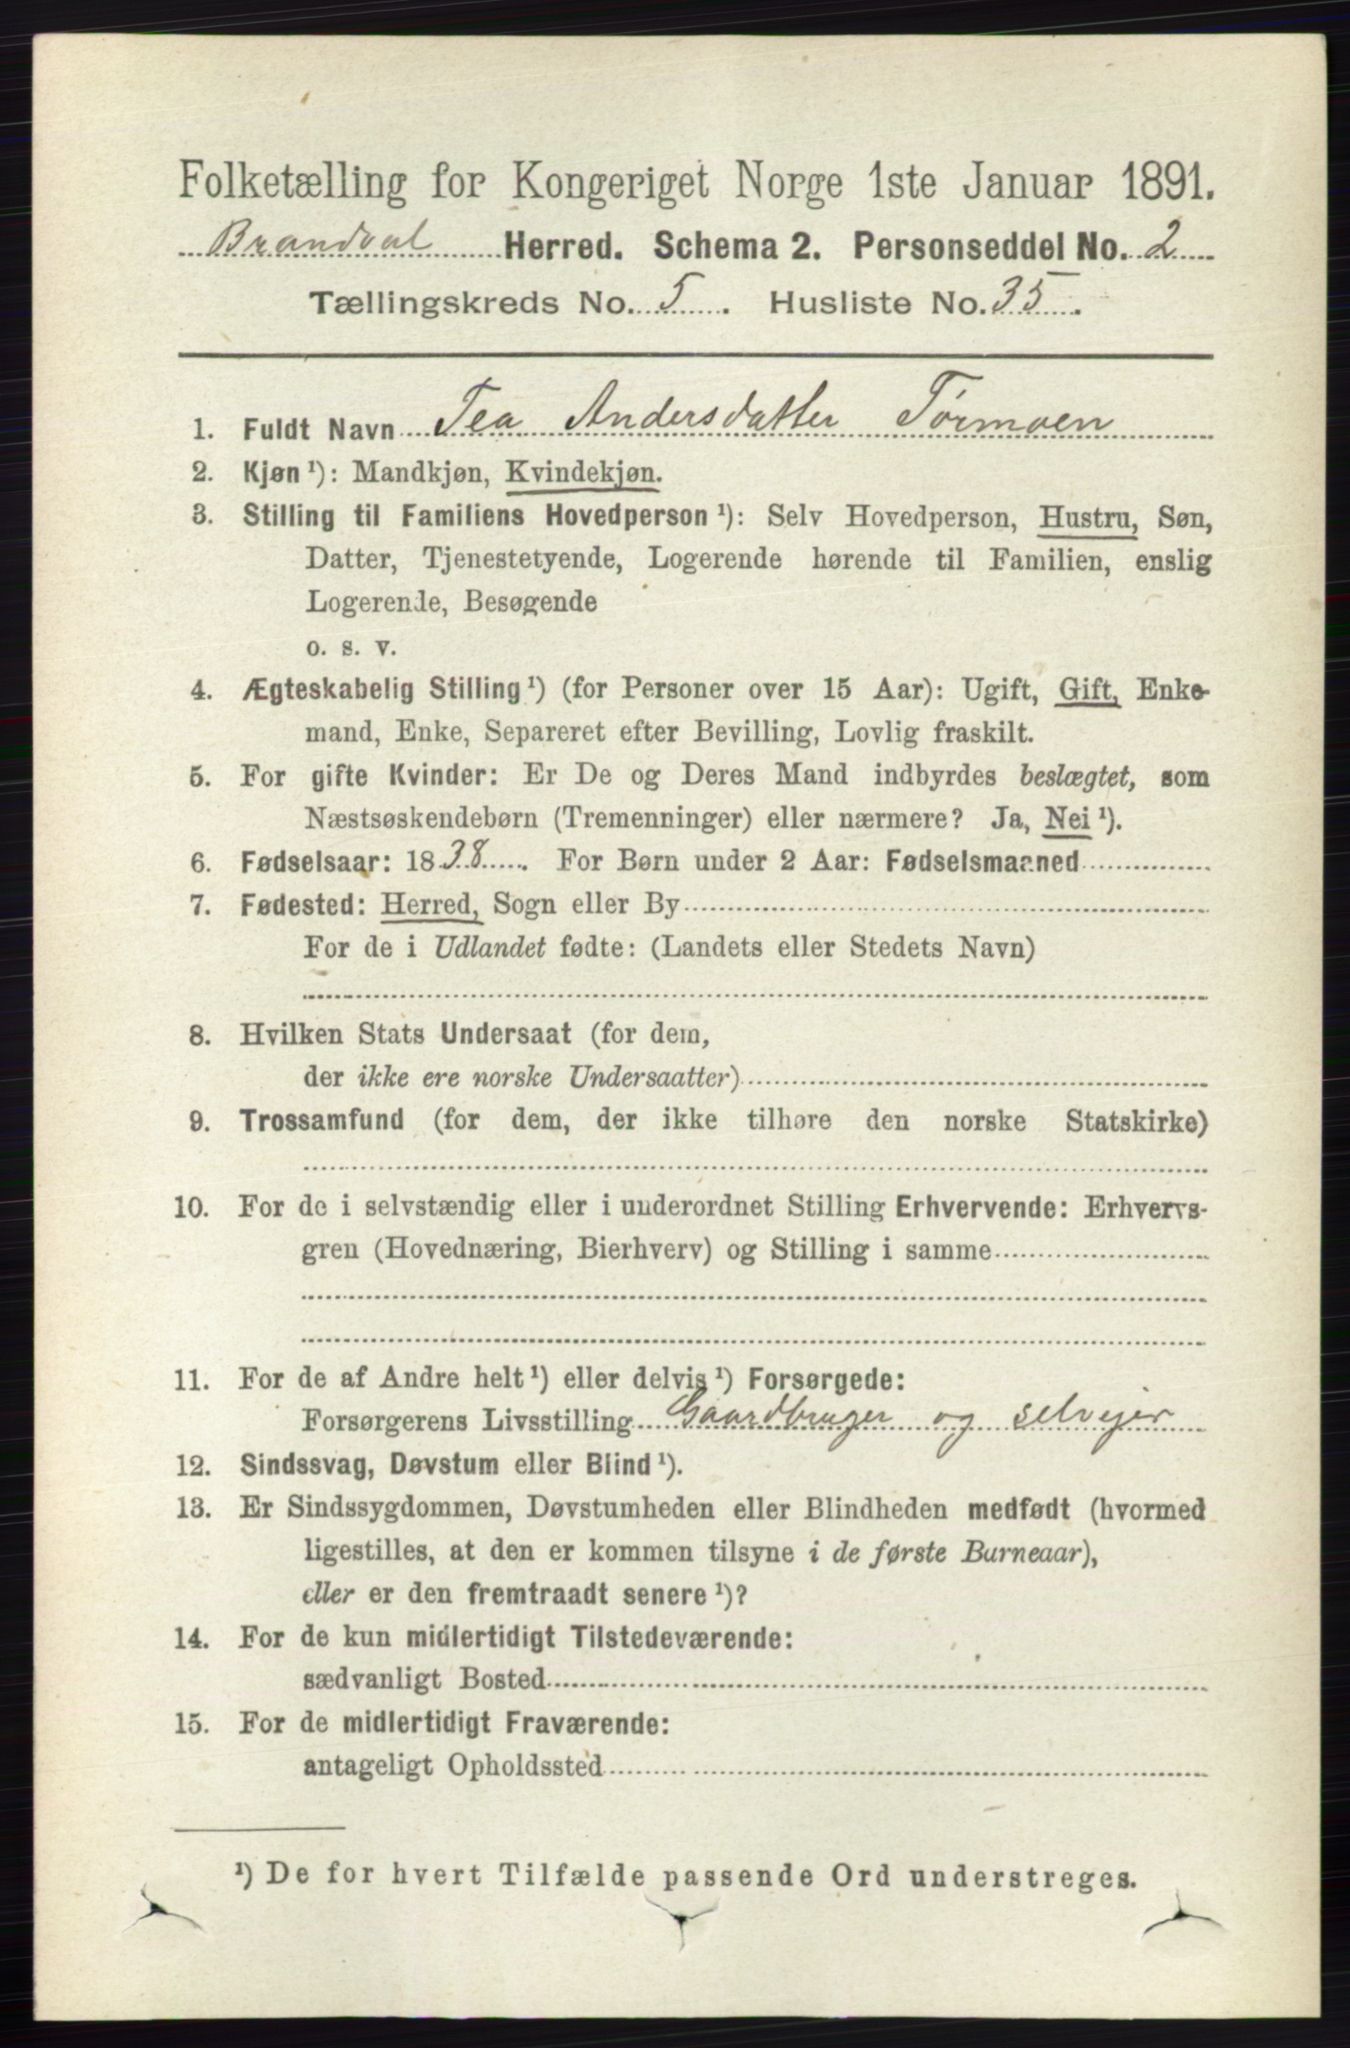 Folketælling for Kongeriget Norge 1ste Januar 1891.
Brandval Herred. Schema 2. Personseddel No. 2
Tællingskreds No. 5. Husliste No. 35.
1. Fuldt Navn Tea Andersdatter Tørmoen
2. Kjøn ¹): Mandkjøn, Kvindekjøn.
3. Stilling til Familiens Hovedperson ¹): Selv Hovedperson, Hustru, Søn,
Datter, Tjenestetyende, Logerende hørende til Familien, enslig
Logerende, Besøgende
o. s. v.
4. Ægteskabelig Stilling ¹) (for Personer over 15 Aar): Ugift, Gift, Enke-
mand, Enke, Separeret efter Bevilling, Lovlig fraskilt.
5. For gifte Kvinder: Er De og Deres Mand indbyrdes beslægtet, som
Næstsøskendebørn (Tremenninger) eller nærmere? Ja, Nei ¹).
6. Fødselsaar: 1838. For Børn under 2 Aar: Fødselsmaaned
7. Fødested: Herred, Sogn eller By
For de i Udlandet fødte: (Landets eller Stedets Navn)
8. Hvilken Stats Undersaat (for dem,
der ikke ere norske Undersaatter)
9. Trossamfund (for dem, der ikke tilhøre den norske Statskirke)
10. For de i selvstændig eller i underordnet Stilling Erhvervende: Erhvervs-
gren (Hovednæring, Bierhverv) og Stilling i samme
11. For de af Andre helt ¹) eller delvis ¹) Forsørgede:
Forsørgerens Livsstilling Gaardbruger og selvejer
12. Sindssvag, Døvstum eller Blind ¹).
13. Er Sindssygdommen, Døvstumheden eller Blindheden medfødt (hvormed
ligestilles, at den er kommen tilsyne i de første Barneaar),
eller er den fremtraadt senere ¹)?
14. For de kun midlertidigt Tilstedeværende:
sædvanligt Bosted
15. For de midlertidigt Fraværende:
antageligt Opholdssted
¹) De for hvert Tilfælde passende Ord understreges.